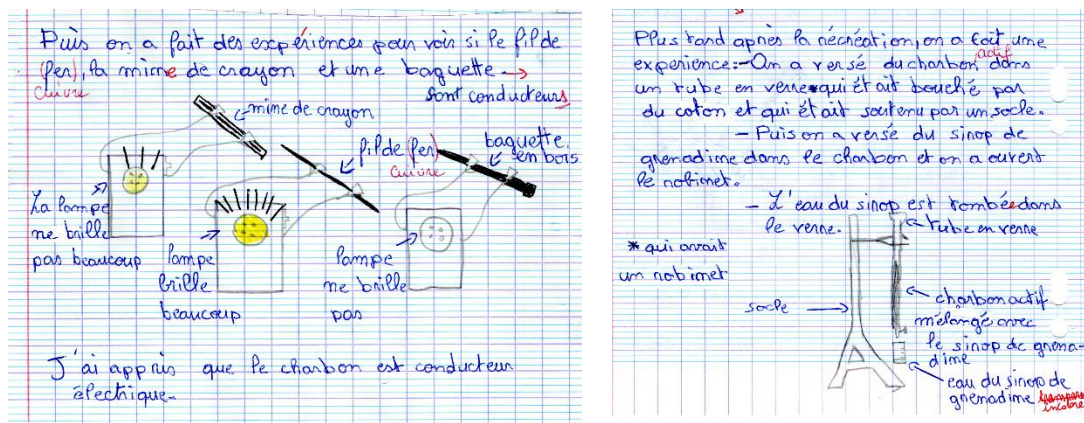 Puis on a fait des expériences pour voir si le fil de
(fer), la mine de crayon et une baguette →
cuivre
sont conducteurs
mine de crayon
fil de (fer)
cuivre
baguette
en bois
La lampe
ne brille
pas beaucoup
lampe
brille
beaucoup
lampe
ne brille
pas
J'ai appris que le charbon est conducteur
électrique.
Plus tard après la récréation, on a fait une
expérience: - On a versé du charbon actif dans
un tube en verre * qui était bouché par
du coton et qui était soutenu par un socle.
- Puis on a versé du sirop de
grenadine dans le charbon et on a ouvert
le robinet.
- L'eau du sirop est tombée dans
le verre.
* qui avait
un robinet
tube en verre
socle
charbon actif
mélangé avec
le sirop de grena-
dine
eau du sirop de
grenadine
incolore